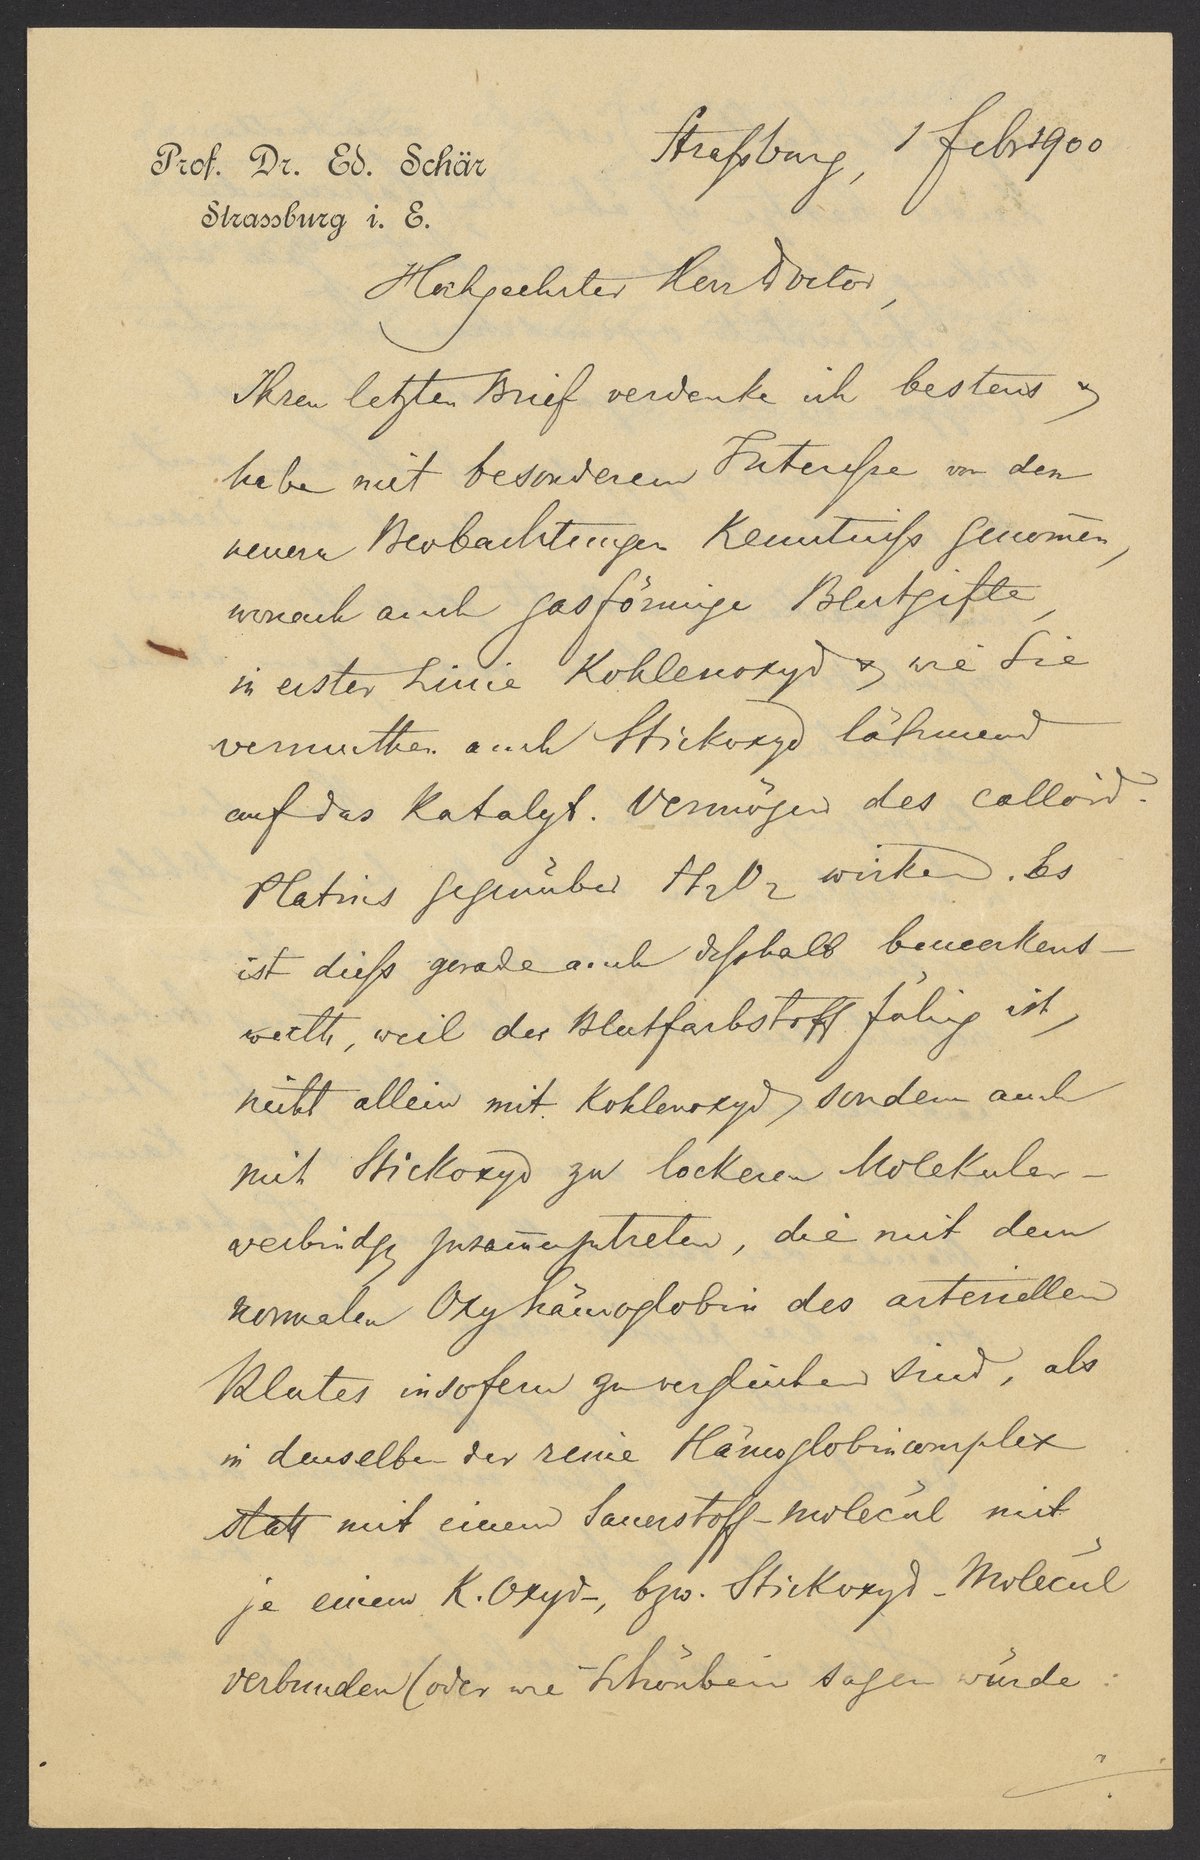 Prof. Dr. Ed. Schär
Strassburg i. E.
Straßburg, 1 Febr 1900
Hochgeehrter Herr Doctor,
Ihren letzten Brief verdanke ich bestens &
habe mit besonderem Interesse von den
neuern Beobachtungen Kenntniß genom̄en,
wonach auch gasförmige Blutgifte,
in erster Linie Kohlenoxyd & wie Sie
vermuthen auch Stickoxyd lähmend
auf das Katalyt. Vermögen des colloid.
Platins gegenüber H2O2 wirken. Es
ist dieß gerade auch deßhalb bemerkens-
werth, weil der Blutfarbstoff fähig ist,
nicht allein mit Kohlenoxyd, sondern auch
mit Stickoxyd zu lockeren Molekular-
verbindg zusam̄enzutreten, die mit dem
normalen Oxyhämoglobin des arteriellen
Blutes insofern zu vergleichen sind, als
in denselben der reine Hämoglobincomplex
statt mit einem Sauerstoff-molecül mit
je einem K.Oxyd-, bzw. Stickoxyd-Molecül
verbunden (oder wie Schönbein sagen würde: